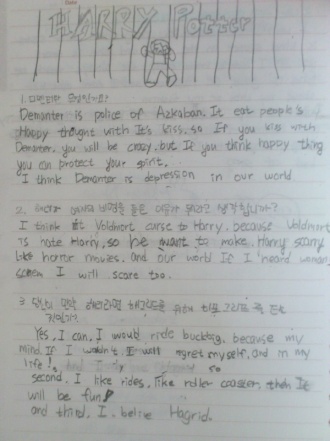 HARRY Potter
1. 디멘터란 무엇인가?
Dementer is police of Azkaban. It eat people's
Happy thought with It's kiss. so If you kiss with
Dementer, you will be crazy. but If you think happy thing
you can protect your spirit.
I think Dementer is depression in our world
2. 해리가 여자의 비명을 들은 이유가 뭐라고 생각합니까?
I think it Voldmort curse to Harry. because Voldmort
is hate Harry, so he want to make Harry scary
like horror movies. and our world If I heard woman
scream I will scare too.
3. 당신이 만약 해리라면 해그리드를 위해
Yes, I can. I would ride buckbig, because my
mind. If I wouldn't, I will regret myself, and in my
life!, so
second, I like rides, like roller coaster, then It
will be fun!
and third, I belive Hagrid.